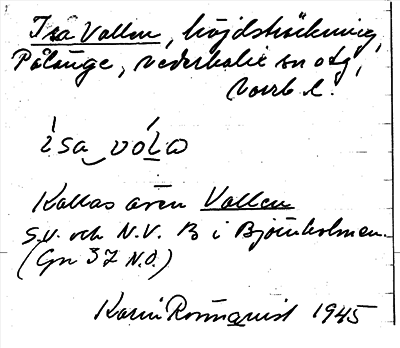 Isa Vallen, höjdsträckning,
Pålänge, Nederkalix sn otg,
Norrb l.
ìsa‿vóla
Kallas även Vallen
S.V. och N.V. B i Björnholmen.
(Gn 37 N.O.)
Karin Rosenquist 1945